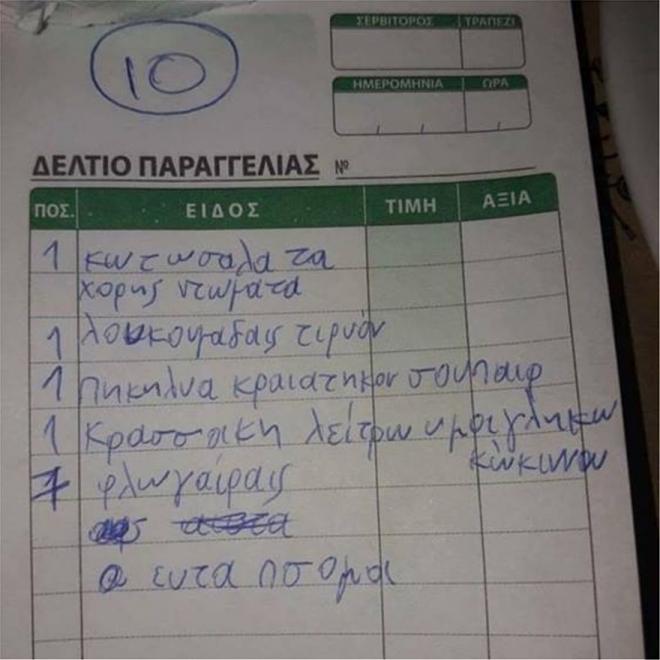 10
ΣΕΡΒΙΤΟΡΟΣ ΤΡΑΠΕΖΙ
ΗΜΕΡΟΜΗΝΙΑ ΩΡΑ
ΔΕΛΤΙΟ ΠΑΡΑΓΓΕΛΙΑΣ Νο
ΠΟΣ. ΕΙΔΟΣ ΤΙΜΗ ΑΞΙΑ
1 κωτωσαλατα
χορης ντωματα
1 λουκουμαδαις τιρυόν
1 Πηκηλυα κραιατηκον σουπαιρ
1 Κρασσακη λείτρω υμφιγληκω
κώκινου
7 φλωγαίραις
ευτα ποτομαι